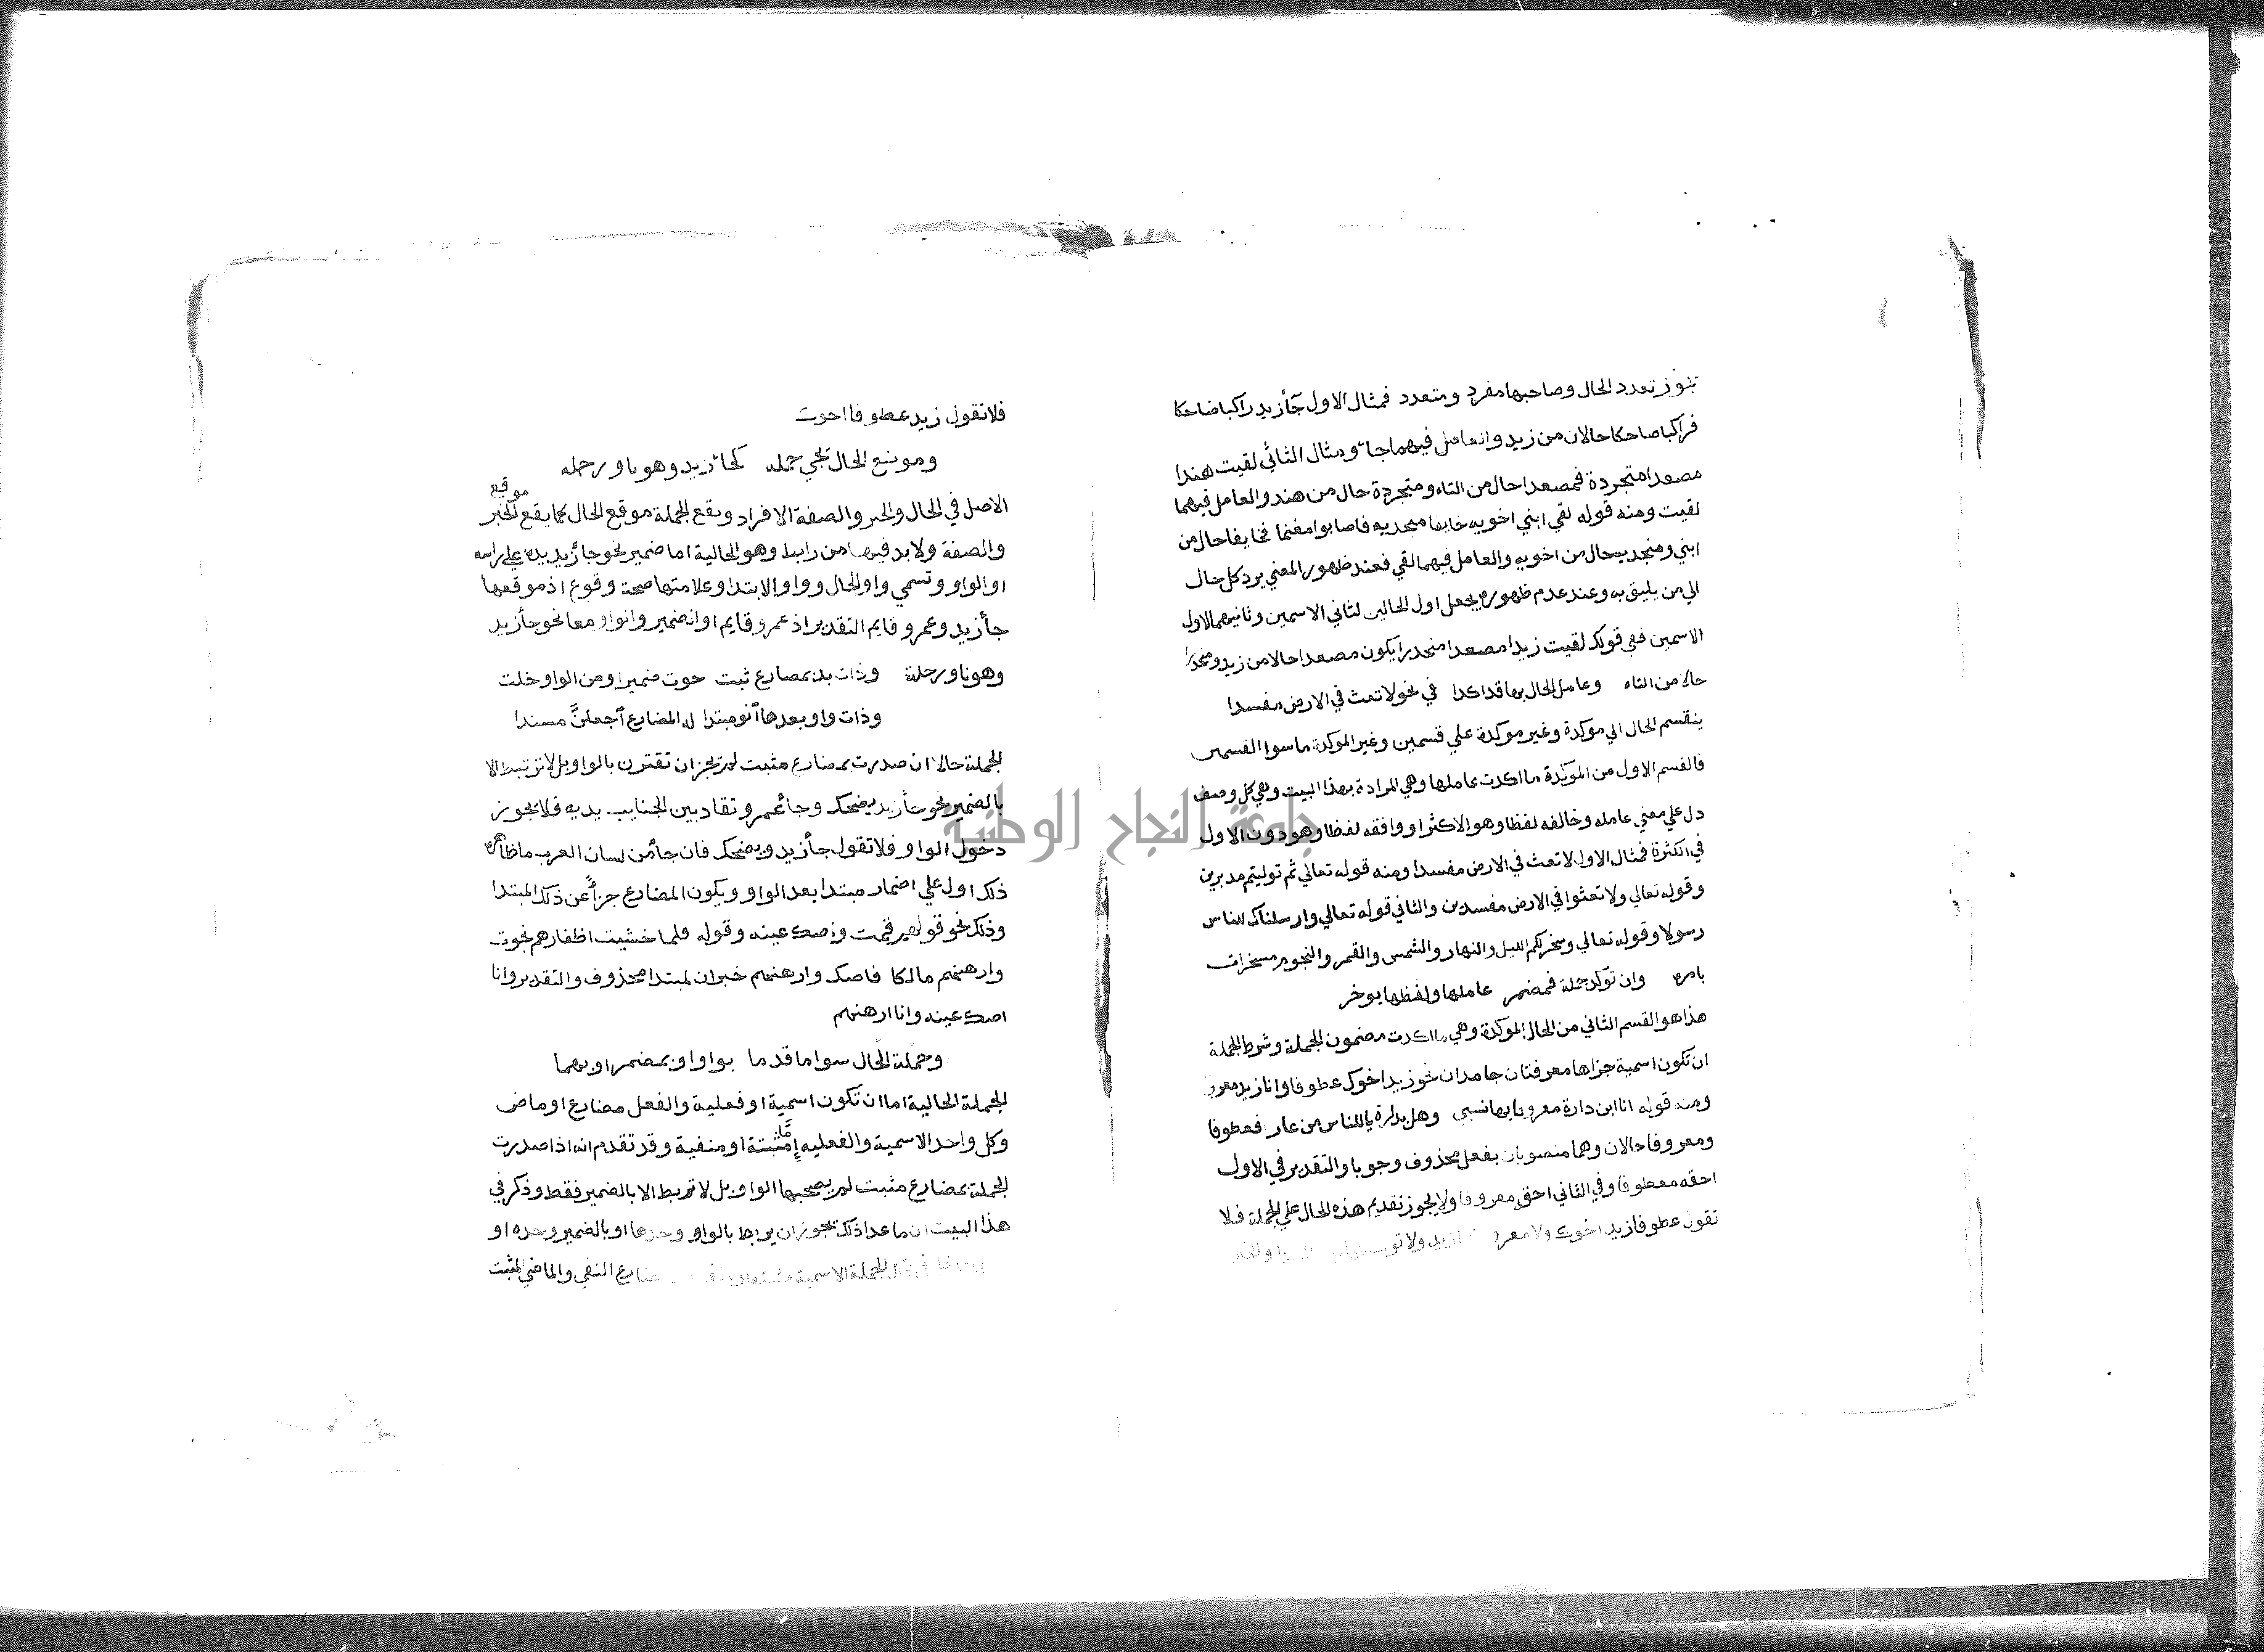 يجوز تعدد الحال وصاحبها مفرد ومتعدد فمثال الاول جأ زيد راكبا ضاحكا
فراكبا ضاحكا حالان من زيد والعامل فيهما جا ومثال الثاني لقيت هندا
مصعدا متجردة فمصعدا حال من التاء ومتجردة حال من هند والعامل فيهما
لقيت ومنه قوله لقي ابني اخويه خايفا منجديه فاصابوا مغنما فخايفا حال من
ابني ومنجديه حال من اخويه والعامل فيهما لقي فعند ظهور المعني يرد كل حال
الي من يليق به وعند عدم ظهوره يجعل اول الحالين لثاني الاسمين وثانيهما لاول
الاسمين ففي قولك لقيت زيدا مصعدا منحدرا يكون مصعدا حالا من زيد ومنحدرا
حالا من التاء وعامل الحال بها قد اكدا في نحو لا تعث في الارض مفسدا
ينقسم الحال الي موكدة وغير موكدة علي قسمين وغير الموكدة ما سوا القسمين
فالقسم الاول من الموكدة ما اكدت عاملها وهي المرادة بهذا البيت وهي كل وصف
دل علي معني عامله وخالفه لفظا وهو الاكثر او وافقه لفظا وهو دون الاول
في الكثرة فمثال الاول لا تعث في الارض مفسدا ومنه قوله تعالي ثم توليتم مدبرين
وقوله تعالي ولا تعثوا في الارض مفسدين والثاني قوله تعالي وارسلناك للناس
رسولا وقوله تعالي وسخر لكم الليل والنهار والشمس والقمر والنجوم مسخرات
بامره وان توكد جملة فمضمر عاملها ولفظها يوخر
هذا هو القسم الثاني من الحال الموكدة وهي ما اكدت مضمون الجملة وشرط الجملة
ان تكون اسمية جزاها معرفتان جامدان نحو زيد اخوك عطوفا وانا زيد معروفا
ومنه قوله انا ابن دارة معروفا بها نسبي وهل بدارة ياللناس من عار فعطوفا
ومعروفا حالان وهما منصوبان بفعل محذوف وجوبا والتقدير في الاول
احقه معطوفا وفي الثاني احق معروفا ولا يجوز تقديم هذه الحال علي الجملة فلا
تقول عطوفا زيد اخوك ولا معروفا انا زيد ولا
فلا تقول زيد عطوفا اخوك
وموضع الحال تجي جمله كجا زيد وهو ناو رحله
الاصل في الحال والخبر والصفة الافراد وتقع الجملة موقع الحال كما يقع موقع الخبر
والصفة ولا بد فيها من رابط وهو الحالية اما ضمير نحو جأ زيد يده علي راسه
او الواو وتسمي واو الحال وواو الابتدا وعلامتها صحة وقوع اذ موقعها
جأ زيد وعمرو قايم التقدير اذ عمرو قايم او الضمير والواو معا نحو جأ زيد
وهو ناو رحلة وذات بدء بمضارع ثبت حوت ضميرا ومن الواو خلت
وذات واو بعدها انو مبتدا له المضارع اجعلنَّ مسندا
الجملة حالا ان صدرت بمضارع مثبت لم يجز ان تقترن بالواو بل لا ترتبط الا
بالضمير نحو جأ زيد يضحك وجأ عمرو تقاد بين الجنايب يديه فلا يجوز
دخول الواو فلا تقول جأ زيد ويضحك فان جأ من لسان العرب ما ظاهره
ذلك اول علي اضمار مبتدا بعد الواو ويكون المضارع خبرأً عن ذلك المبتدا
وذلك نحو قولهم قمت واصك عينه وقوله فلما خشيت اظفارهم نجوت
وارهنهم مالكا فاصك وارهنهم خبران لمبتدا محذوف والتقدير وانا
اصك عينه وانا ارهنهم
وجملة الحال سوا ما قدما بواو او بمضمر او بهما
الجملة الحالية اما ان تكون اسمية او فعلية والفعل مضارع او ماض
وكل واحد الاسمية والفعليه إمَّا مثبتة او منفية وقد تقدم انه اذا صدرت
الجملة بمضارع مثبت لم يصحبها الواو بل لا تربط الا بالضمير فقط وذكر في
هذا البيت ان ما عدا ذلك يجوز ان يربط بالواو وحدها او بالضمير وحده او
الجملة الاسمية المضارع النفي والماضي المثبت
جامعة النجاح الوطنية